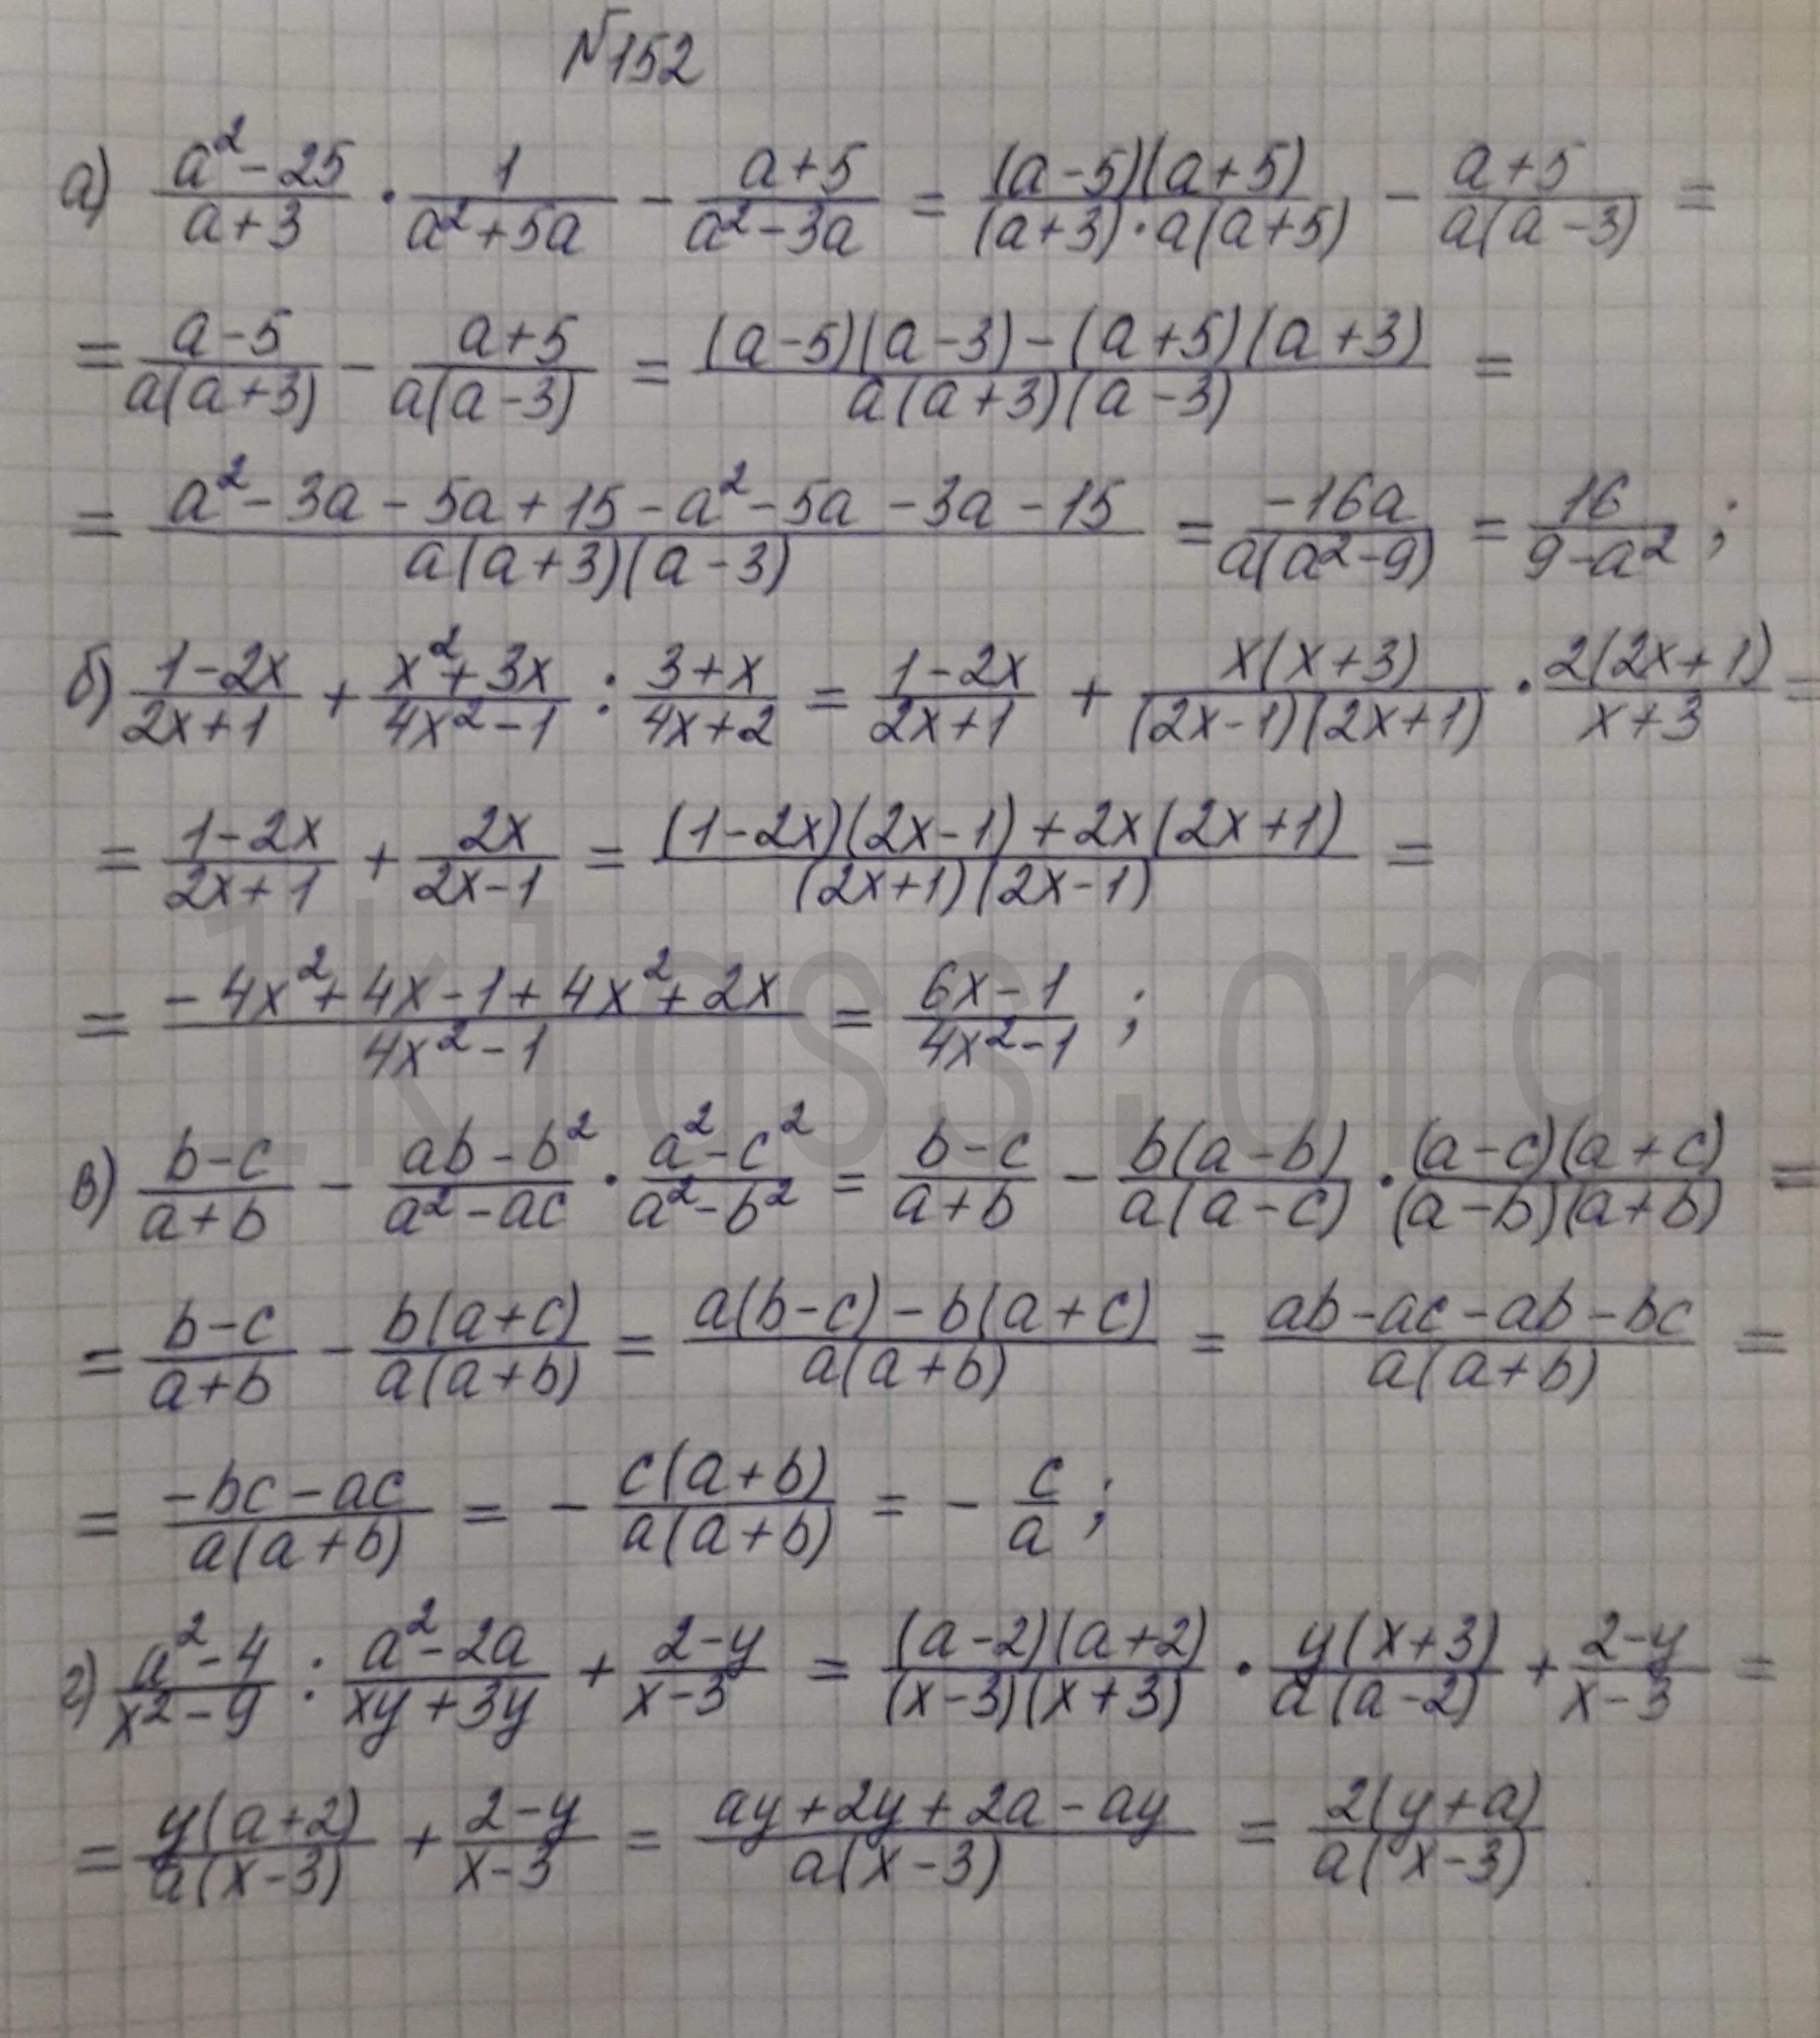 №152
а) \frac{a^2-25}{a+3} · \frac{1}{a^2+5a} - \frac{a+5}{a^2-3a} = \frac{(a-5)(a+5)}{(a+3)·a(a+5)} - \frac{a+5}{a(a-3)} =
= \frac{a-5}{a(a+3)} - \frac{a+5}{a(a-3)} = \frac{(a-5)(a-3)-(a+5)(a+3)}{a(a+3)(a-3)} =
= \frac{a^2-3a-5a+15-a^2-5a-3a-15}{a(a+3)(a-3)} = \frac{-16a}{a(a^2-9)} = \frac{16}{9-a^2};
б) \frac{1-2x}{2x+1} + \frac{x^2+3x}{4x^2-1} : \frac{3+x}{4x+2} = \frac{1-2x}{2x+1} + \frac{x(x+3)}{(2x-1)(2x+1)} · \frac{2(2x+1)}{x+3} =
= \frac{1-2x}{2x+1} + \frac{2x}{2x-1} = \frac{(1-2x)(2x-1)+2x(2x+1)}{(2x+1)(2x-1)} =
= \frac{-4x^2+4x-1+4x^2+2x}{4x^2-1} = \frac{6x-1}{4x^2-1};
1klass.org
в) \frac{b-c}{a+b} - \frac{ab-b^2}{a^2-ac} · \frac{a^2-c^2}{a^2-b^2} = \frac{b-c}{a+b} - \frac{b(a-b)}{a(a-c)} · \frac{(a-c)(a+c)}{(a-b)(a+b)} =
= \frac{b-c}{a+b} - \frac{b(a+c)}{a(a+b)} = \frac{a(b-c)-b(a+c)}{a(a+b)} = \frac{ab-ac-ab-bc}{a(a+b)} =
= \frac{-bc-ac}{a(a+b)} = - \frac{c(a+b)}{a(a+b)} = - \frac{c}{a};
г) \frac{a^2-4}{x^2-9} : \frac{a^2-2a}{xy+3y} + \frac{2-y}{x-3} = \frac{(a-2)(a+2)}{(x-3)(x+3)} · \frac{y(x+3)}{a(a-2)} + \frac{2-y}{x-3} =
= \frac{y(a+2)}{a(x-3)} + \frac{2-y}{x-3} = \frac{ay+2y+2a-ay}{a(x-3)} = \frac{2(y+a)}{a(x-3)}.